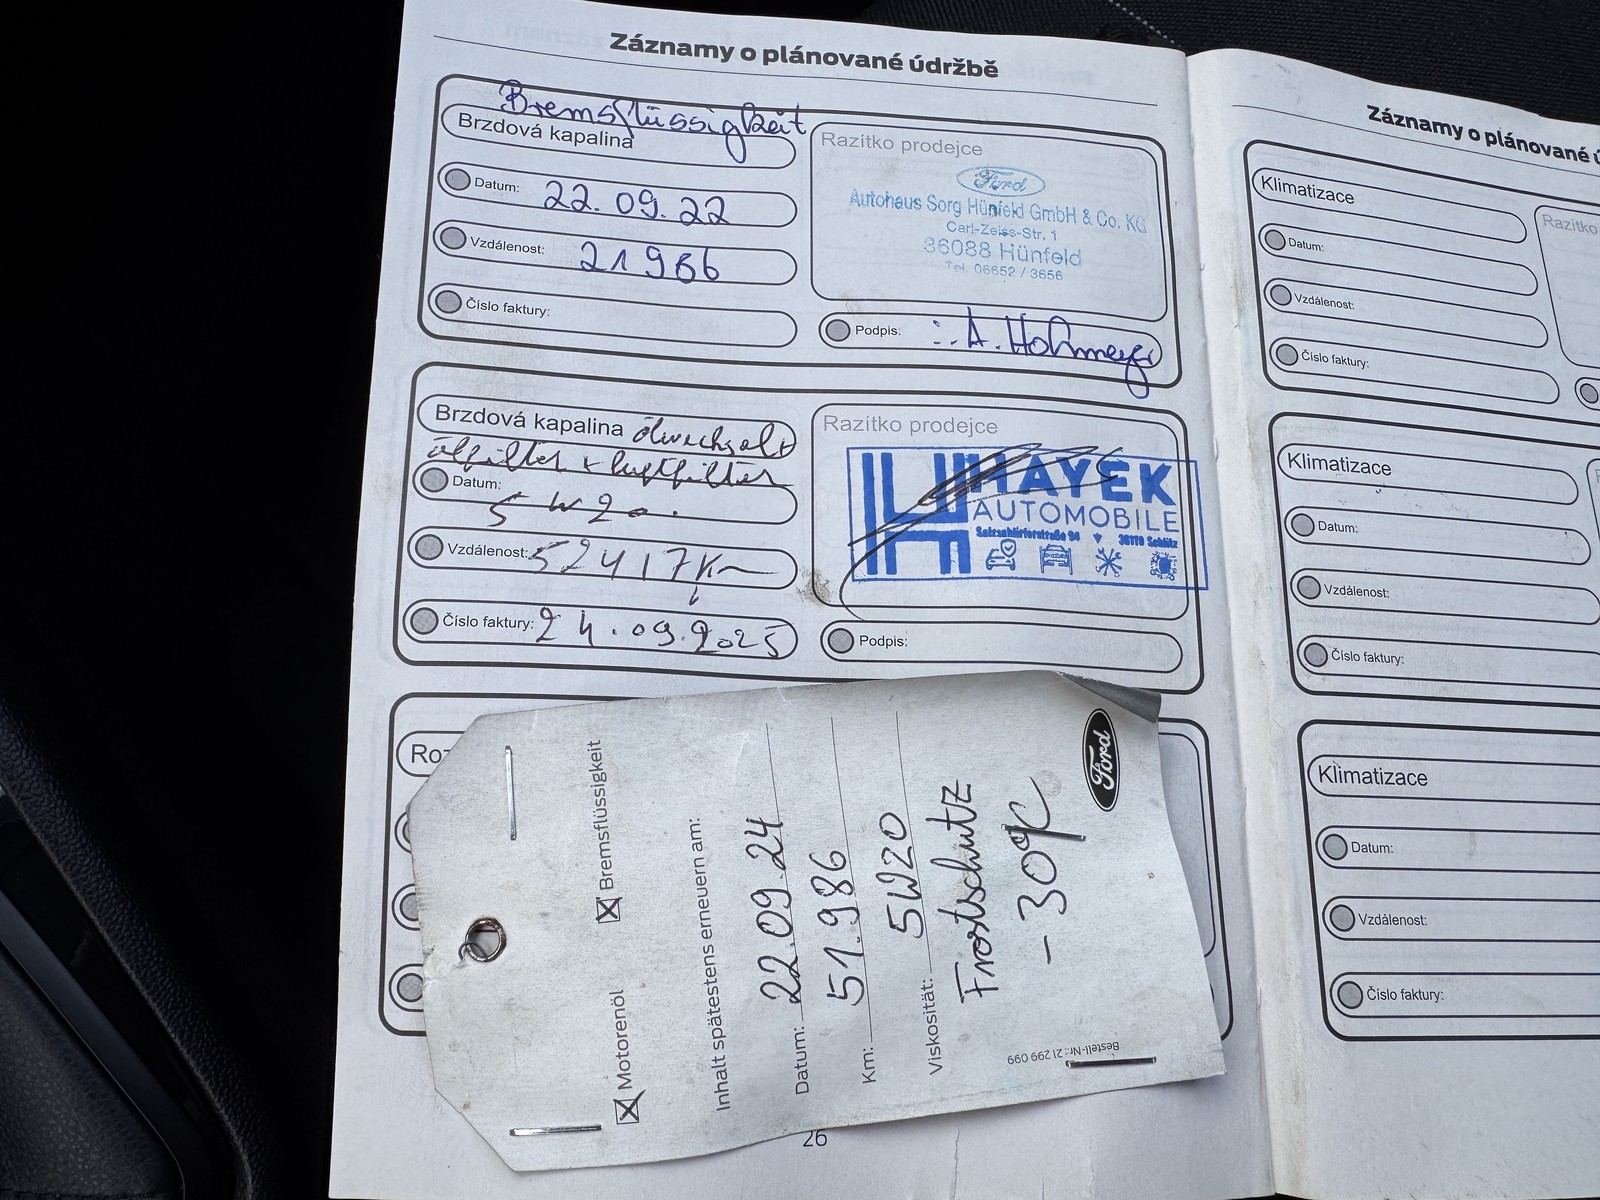 Záznamy o plánované údržbě
Bremsflüssigkeit
Brzdová kapalina
Datum: 22.09.22
Vzdálenost: 21986
Číslo faktury:
Razítko prodejce
Ford
Autohaus Sorg Hünfeld GmbH & Co. KG
Carl-Zeiss-Str. 1
36088 Hünfeld
Tel. 06652 / 3656
Podpis: A.
Brzdová kapalina ölwechsel +
ölfilter + luftfilter
Datum:
5 W 20.
Vzdálenost: 52417 Km
Číslo faktury: 24.09.2025
Razítko prodejce
HAYEK
AUTOMOBILE
Salzschlirferstraße 94 36110 Schlitz
Podpis:
Roz
Motorenöl Bremsflüssigkeit
Inhalt spätestens erneuern am:
Datum: 22.09.24
Km: 51.986
Viskosität: 5W20
Frostschutz
-30°C
Ford
Bestell-Nr.: 21 299 099
26
Záznamy o plánované ú
Klimatizace
Datum:
Vzdálenost:
Číslo faktury:
Razítko
Klimatizace
Datum:
Vzdálenost:
Číslo faktury:
Klimatizace
Datum:
Vzdálenost:
Číslo faktury: